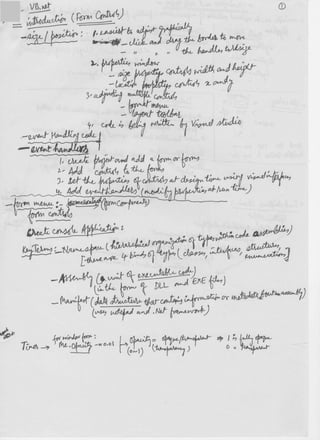 - VB.net ①
introduction (Form Controls)
- size / position :- 1. easiest to adjust graphically
- click and drag the border to move
- " " " the handles to resize
2. properties window
- size property controls width and height
- location property controls x and y
3. adjusting multiple controls
- format menu
- layout toolbar
4. code is being written by visual studio
- event Handling code
- event handlers
1. create project and add a form or forms
2. Add controls to the forms
3. Set the properties of controls at design time using visual
4. Add event handlers (modify properties at run time)
- form menu :- (form Components)
form controls
Create console Application :
Key Terms :- Namespace (hierarchical organization of types within code assemblies)
[there are 4 kinds of types (classes, interfaces, structures, enumerations)]
- Assembly (a unit of executable code)
(in the form of DLL and EXE files)
- Manifest (data structure that contains information or metadata about an assembly)
(uses notepad and .Net framework)
for window form :
Timer → Me.Opacity → 0.01 Opacity = opaque/transparent ⇒ 1 is fully opaque
(0-1) (transparency) 0 = transparent